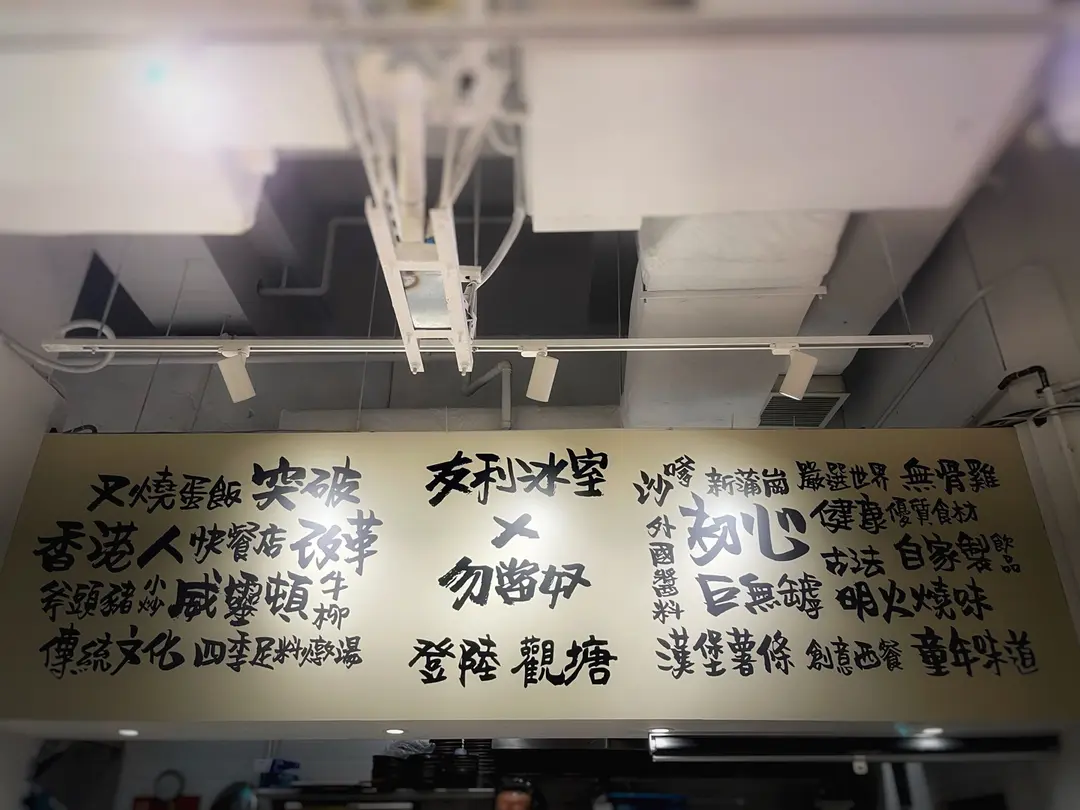 叉燒蛋飯 突破
香港人 快餐店 改革
斧頭豬 小炒 威靈頓 牛柳
傳統文化 四季足料燉湯
友利冰室
×
勿醬好
登陸 觀塘
沙嗲 新蒲崗 嚴選世界 無骨雞
外國醬料 初心 健康 優質食材
古法 自家製 飲品
巨無罅 明火燒味
漢堡薯條 創意西餐 童年味道